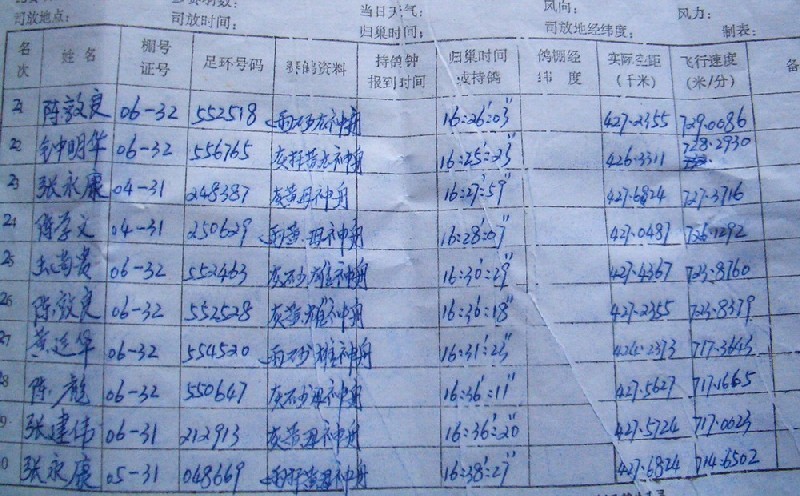 当日天气: 风向:
司放地点: 司放时间: 归巢时间: 司放地经纬度: 风力: 制表:
名次 姓名 棚号证号 足环号码 赛鸽资料 持鸽钟报到时间 归巢时间或持鸽 鸽棚经纬度 实际空距(千米) 飞行速度(米/分) 备
21 陈敦良 06-32 552518 16:26:03" 427.2355 729.0086
22 钟明华 06-32 556765 16:25:23" 426.3311 728.2930
23 张永康 04-31 248387 灰黄 16:27:59" 427.6824 727.3716
24 陈孝文 04-31 250629 雨黄 16:28:07" 427.0487 726.1292
25 06-32 552463 灰砂雄 16:30:29" 427.4367 723.8760
26 陈敦良 06-32 552528 灰黄雄 16:36:18" 427.2355 723.8379
27 黄运华 06-32 554520 雨砂雄 16:31:23" 424.2373 717.3643
28 陈龙 06-32 550647 灰砂 16:36:11" 427.5627 717.1665
9 张建伟 06-31 212913 灰黄 16:36:20" 427.5724 717.0023
0 张永康 05-31 048669 16:38:27" 427.6824 714.6502